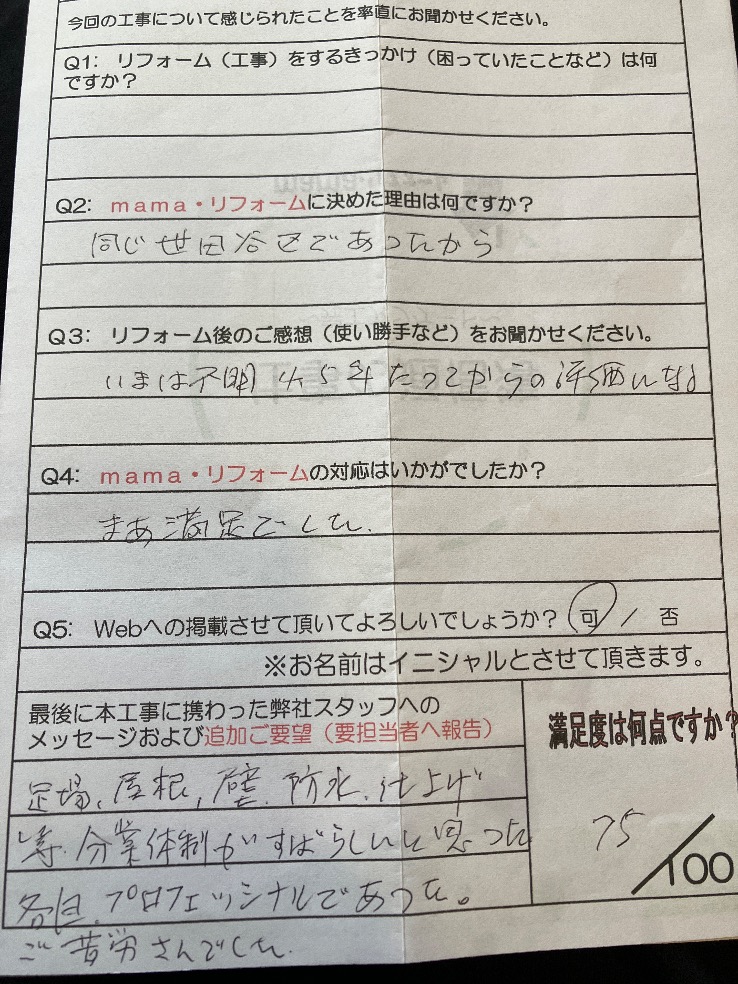 今回の工事について感じられたことを率直にお聞かせください。
Q1: リフォーム（工事）をするきっかけ（困っていたことなど）は何
ですか？
Q2: mama・リフォームに決めた理由は何ですか？
同じ世田谷区であったから
Q3: リフォーム後のご感想（使い勝手など）をお聞かせください。
いまは不明 4、5年たってからの評価になる
Q4: mama・リフォームの対応はいかがでしたか？
まあ満足でした.
Q5: Webへの掲載させて頂いてよろしいでしょうか？ 可 / 否
※お名前はイニシャルとさせて頂きます。
最後に本工事に携わった弊社スタッフへの
メッセージおよび追加ご要望（要担当者へ報告）
足場、屋根、壁、防水、仕上げ
等、分業体制がすばらしいと思った
各自、プロフェッショナルであった。
ご苦労さんでした.
満足度は何点ですか？
75
/100